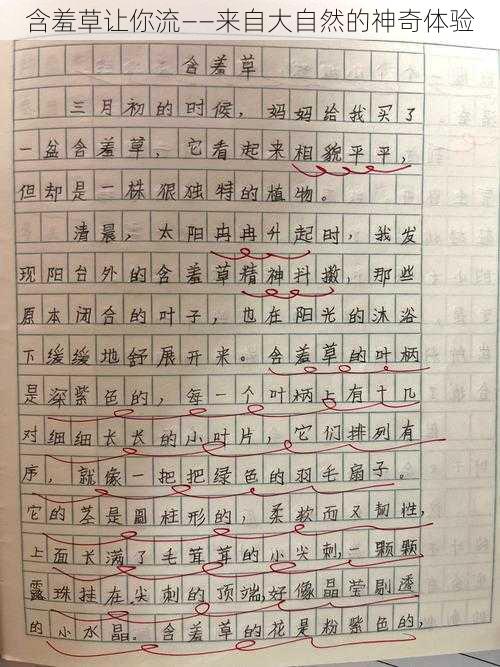 含羞草让你流——来自大自然的神奇体验
含羞草
三月初的时候，妈妈给我买了
一盆含羞草，它看起来相貌平平，
但却是一株很独特的植物。
清晨，太阳冉冉升起时，我发
现阳台外的含羞草精神抖擞，那些
原本闭合的叶子，也在阳光的沐浴
下缓缓地舒展开来。含羞草的叶柄
是深紫色的，每一个叶柄占有十几
对细细长长的小叶片，它们排列有
序，就像一把把绿色的羽毛扇子。
它的茎是圆柱形的，柔软而又韧性，
上面长满了毛茸茸的小尖刺，一颗颗
露珠挂在尖刺的顶端，好像晶莹剔透
的小水晶。含羞草的花是粉紫色的，